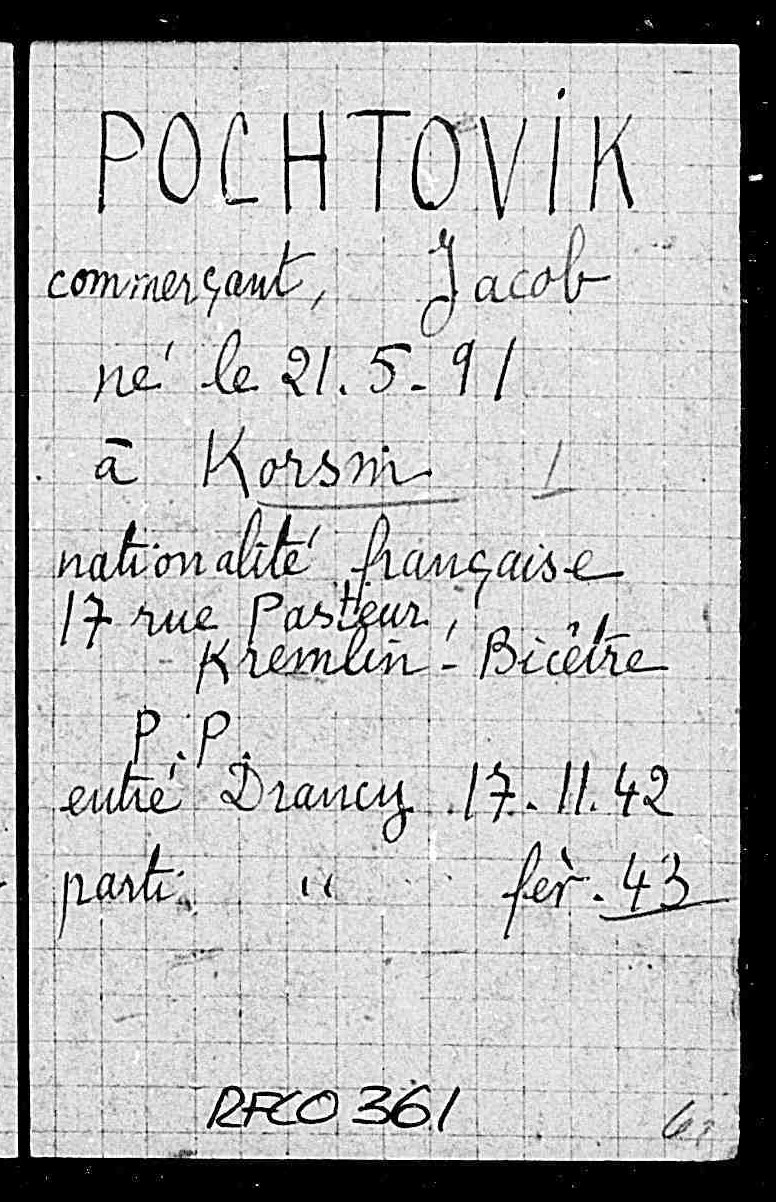 POCHTOVIK
commerçant, Jacob
né le 21.5-91
à Korsin
nationalité française
17 rue Pasteur,
Kremlin-Bicêtre
P.P.
entré Drancy 17.11.42
parti " fév. 43
RFCO 361